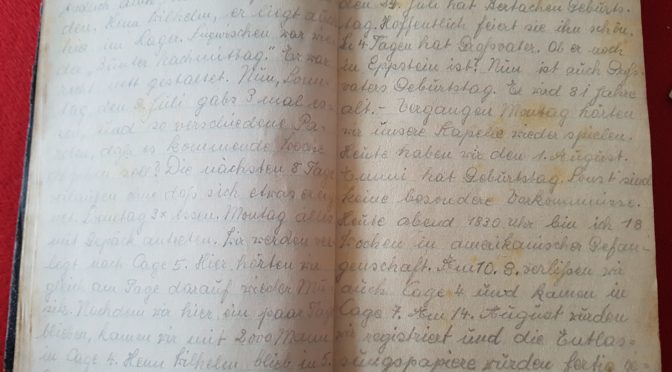 den. Henn Wilhelm, er liegt auch
hier im Lager. Inzwischen war wie
der „Bunter Nachmittag." Er war
recht nett gestaltet. Nun, Sonn
tag den 8. Juli gabs 3 mal es-
sen, und so verschiedene Pa-
kommende Woche
Die nächsten 8 Tage
daß sich etwas ereig
net. Sonntag 3x Essen. Montag alles
mit Gepäck antreten. Wir werden ver
legt nach Cage 5. Hier hörten wir
gleich am Tage darauf wieder Mu
sik. Nachdem wir hier ein paar Tag
blieben, kamen wir mit 2000 Mann
in Cage 4. Henn Wilhelm blieb in 5.
Juli hat Gertachen Geburts-
tag. Hoffentlich feiert sie ihn schön.
In 4 Tagen hat Großvater. Ob er noch
in Eppstein ist? Nun ist auch Groß-
vaters Geburtstag. Er wird 81 Jahre
alt. - Vergangen Montag hörten
wir unsere Kapelle wieder spielen.
Heute haben wir den 1. August.
Emmi hat Geburtstag. Sonst sind
keine besondere Vorkommnisse.
Heute abend 1830 Uhr bin ich 18
Wochen in amerikanischer Gefan-
genschaft. Am 10. 8. verließen wir
auch Cage 4 und kamen in
Cage 7. Am 14. August wurden
wir registriert und die Entlas-
sungspapiere wurden fertig ge-